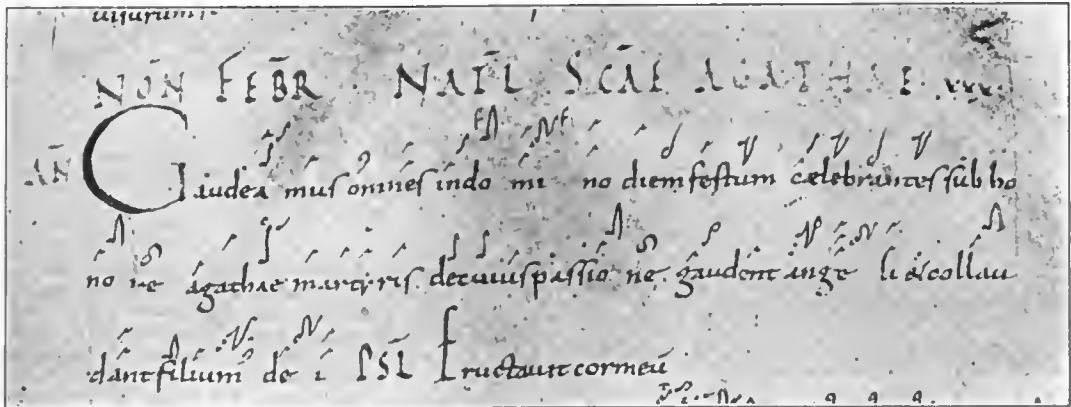 uisurum
NOÑ FEBR̄ NAT̄L SC̄AE AGATHAE xxx
AÑ Gaudea mus omnes indo mi no diem festum cælebrantes sub ho
no re agathae martyris decuius passio ne gaudent ange li & collau
dant filium de i PSL̄ Eructauit cor meū